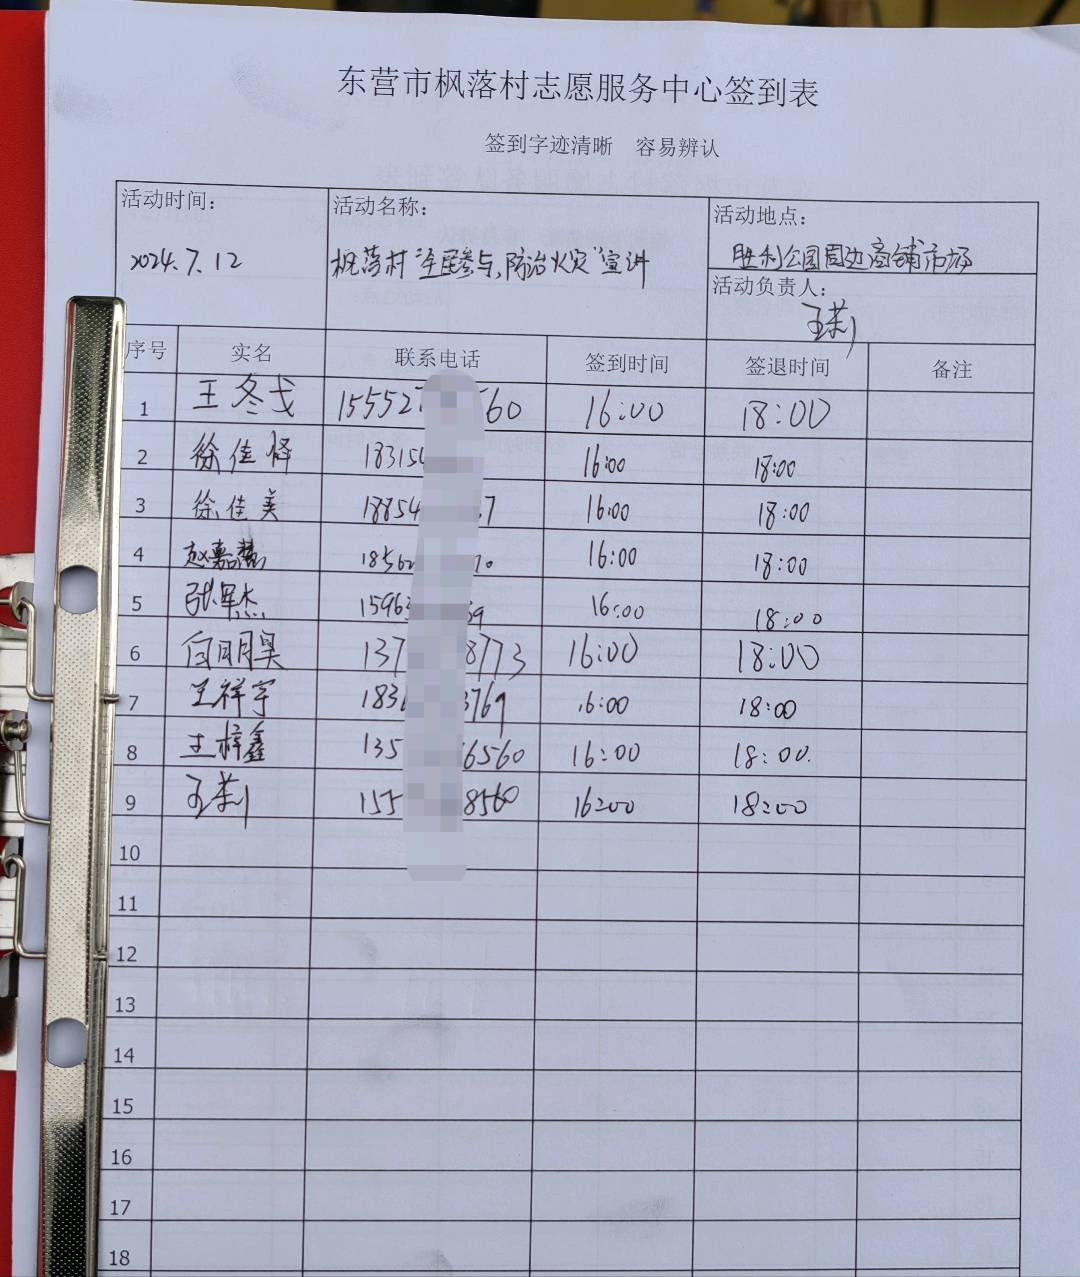 东营市枫落村志愿服务中心签到表
签到字迹清晰 容易辨认
活动时间: 活动名称: 活动地点:
2024.7.12 枫落村“全民参与,防治火灾”宣讲 胜利公园周边商铺市场
活动负责人:
王莉
序号 实名 联系电话 签到时间 签退时间 备注
1 王冬戈 15552 560 16:00 18:00
2 徐佳怿 18315 16:00 18:00
3 徐佳美 18854 7 16:00 18:00
4 赵嘉慧 1856 70 16:00 18:00
5 张军杰 1596 59 16:00 18:00
6 白明昊 137 8773 16:00 18:00
7 王祥宇 183 3769 16:00 18:00
8 王梓鑫 135 6560 16:00 18:00.
9 王莉 155 8560 16:00 18:00
10
11
12
13
14
15
16
17
18